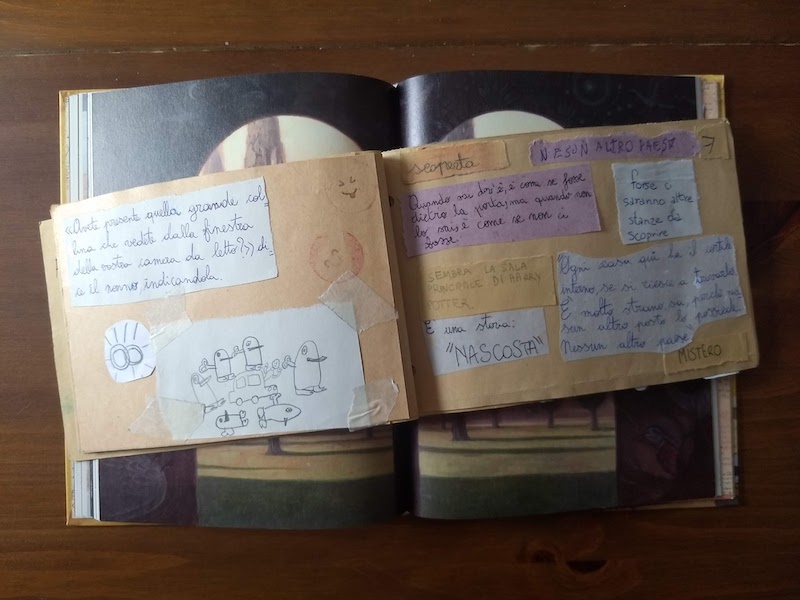 «Avete presente quella grande col=
lina che vedete dalla finestra
della vostra camera da letto?» di=
ce il nonno indicandola.
scoperta
NESSUN ALTRO PAESE
7
Quando sai dov'è, è come se fosse
dietro la porta, ma quando non
lo sai, è come se non ci
fosse.
forse ci
saranno altre
stanze da
scoprire
SEMBRA LA SALA
PRINCIPALE DI HARRY
POTTER
È una storia:
"NASCOSTA"
Ogni casa qui ha il cortile
interno, se si riesce a trovarlo.
È molto strano sai, perché nes
sun altro posto lo possiede.
Nessun altro paese.
MISTERO